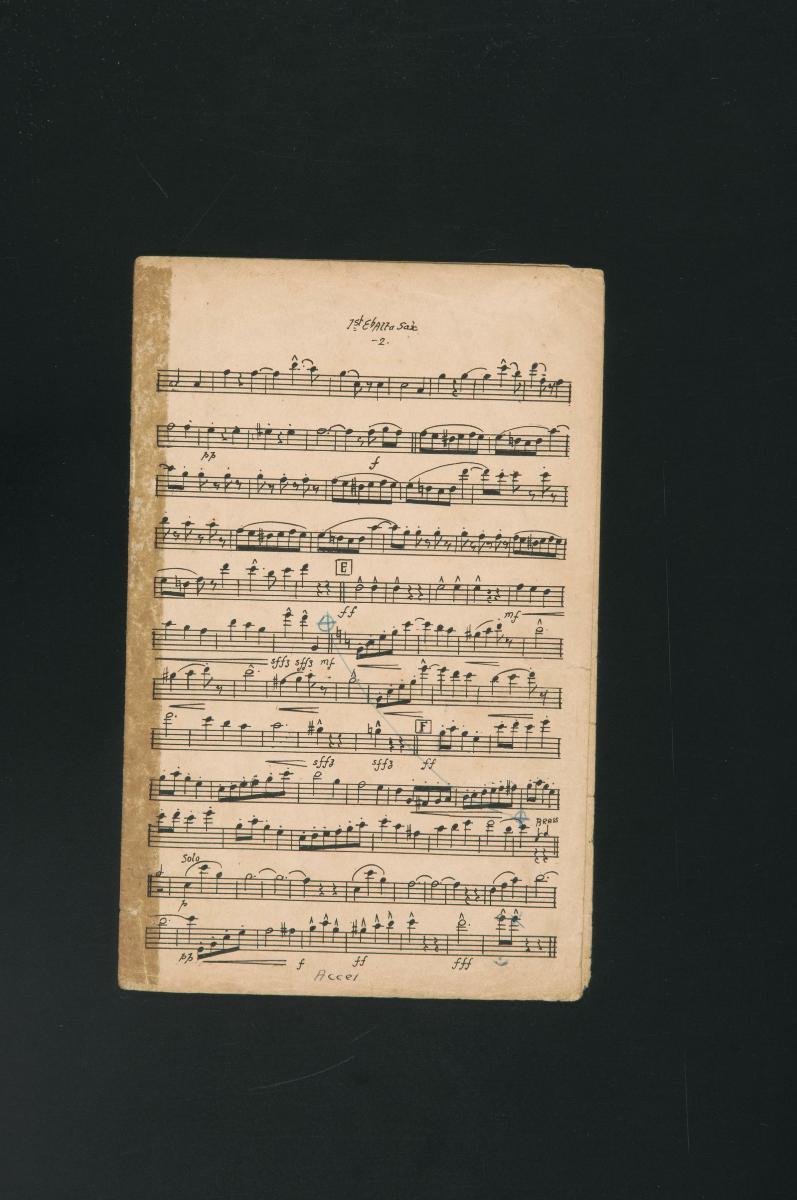 1st Eb Alto Sax
-2.
pp
f
E
ff mf
sffz sffz mf
F
sffz sffz ff
Brass
Solo
p
pp f ff fff
Accel